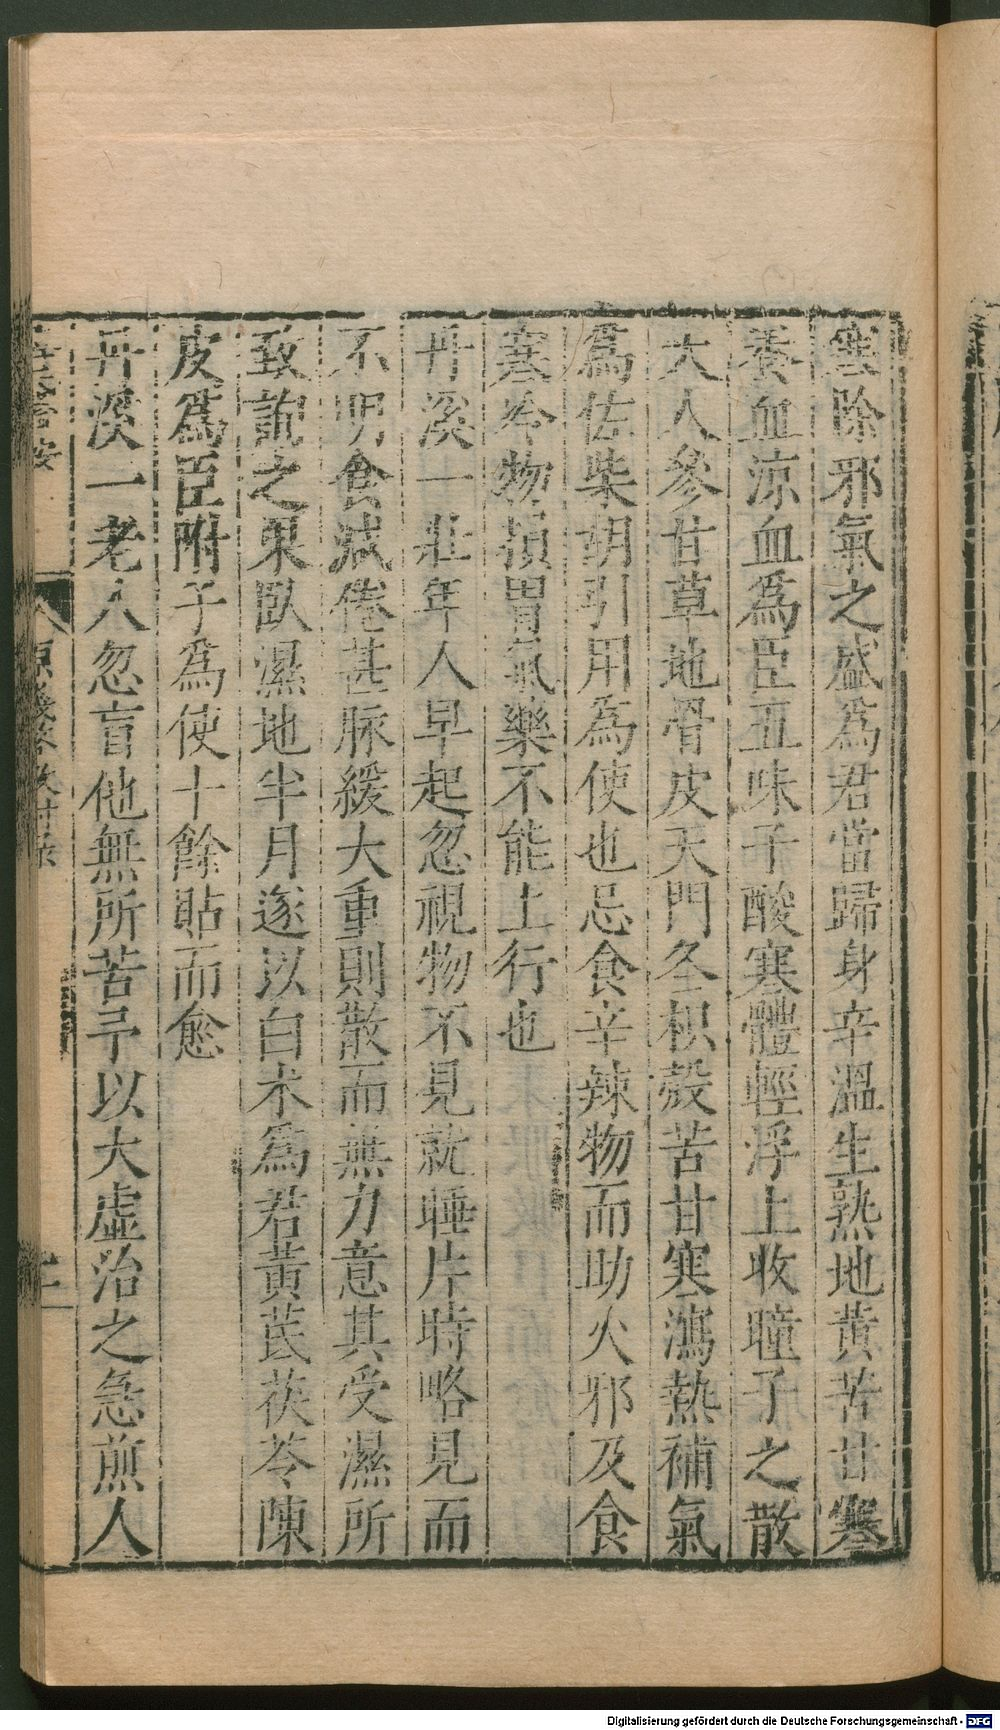 寒除邪氣之盛爲君當歸身辛溫生熟地黄苦甘寒
養血凉血爲臣五味子酸寒體輕浮上收瞳子之散
大人參甘草地骨皮天門冬枳殼苦甘寒瀉熱補氣
爲佐柴胡引用爲使也忌食辛辣物而助火邪及食
寒冷物損胃氣藥不能上行也
丹溪一壯年人早起忽視物不見就睡片時略見而
不明食減倦甚脉緩大重則散而無力意其受濕所
致詢之果臥濕地半月遂以白术爲君黃芪茯苓陳
皮爲臣附子爲使十餘貼而愈
丹溪一老人忽盲他無所苦予以大虛治之急煎人
醫按
原幾啓微附錄
Digitalisierung gefördert durch die Deutsche Forschungsgemeinschaft - DFG